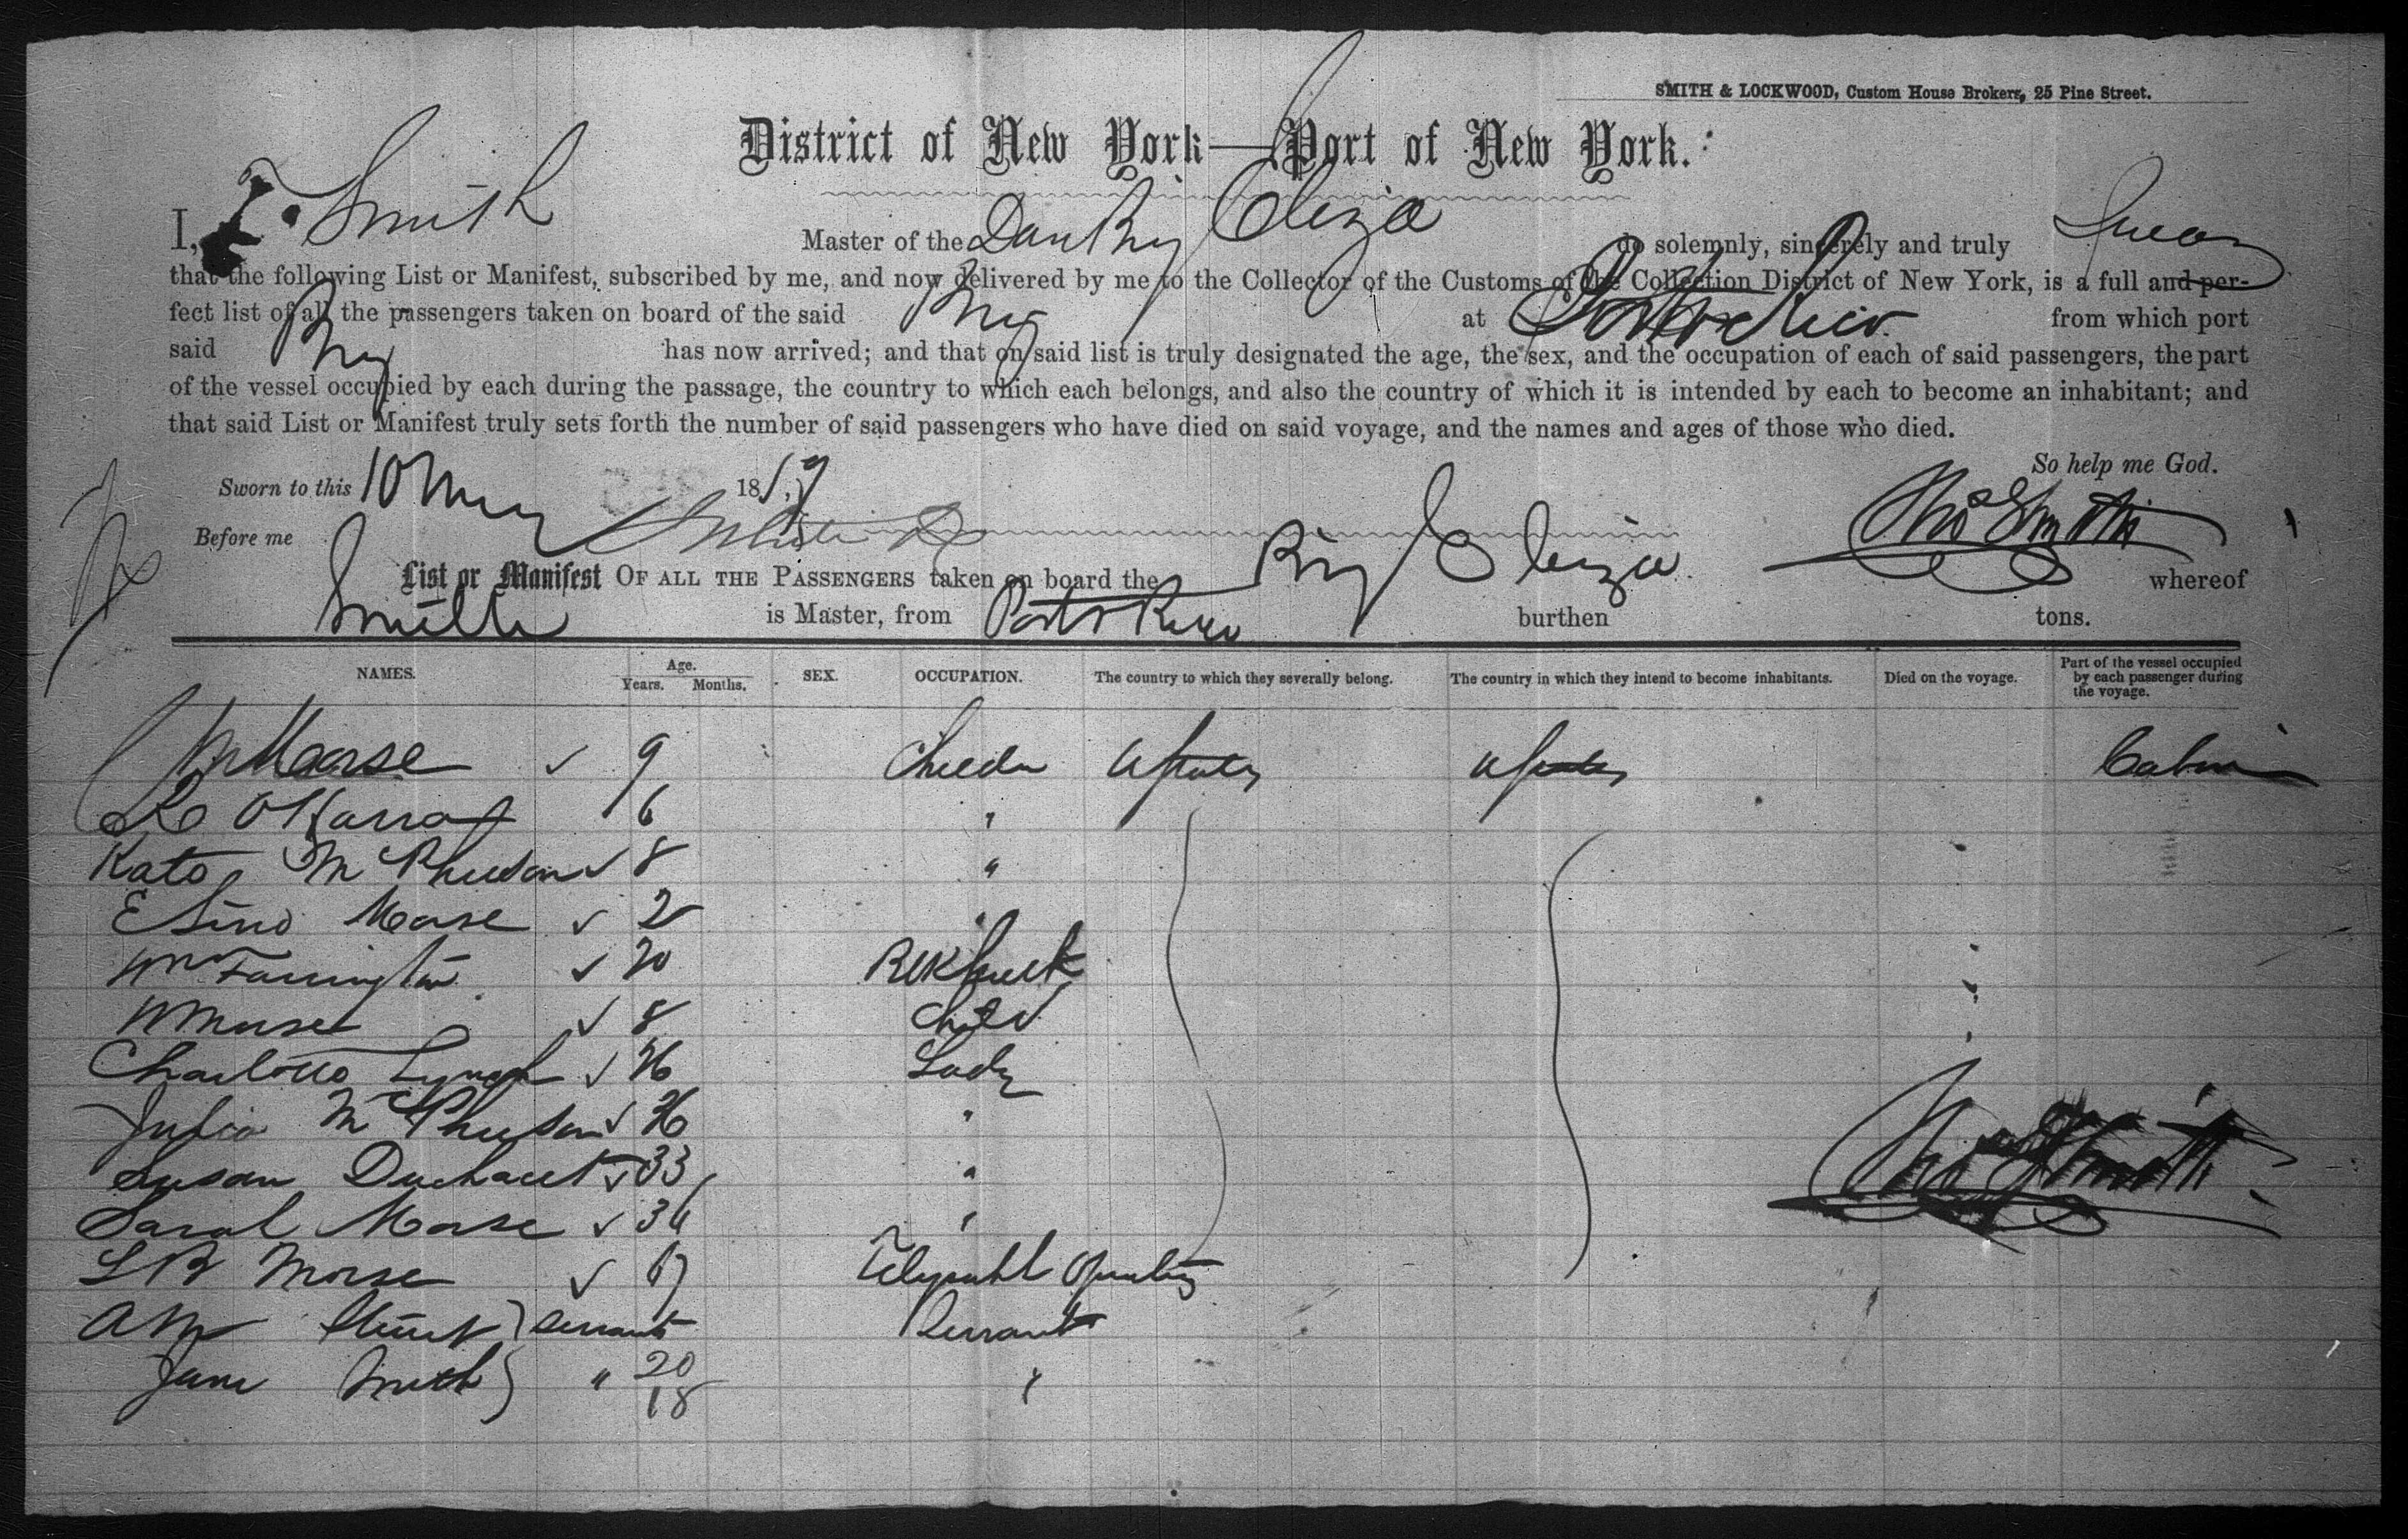 SMITH & LOCKWOOD, Custom House Brokers, 25 Pine Street.
District of New York—Port of New York.
I, Smith Master of the Dan Brig Eliza do solemnly, sincerely and truly Swear
that the following List or Manifest, subscribed by me, and now delivered by me to the Collector of the Customs of the Collection District of New York, is a full and per-
fect list of all the passengers taken on board of the said Brig at Porto Rico from which port
said Brig has now arrived; and that on said list is truly designated the age, the sex, and the occupation of each of said passengers, the part
of the vessel occupied by each during the passage, the country to which each belongs, and also the country of which it is intended by each to become an inhabitant; and
that said List or Manifest truly sets forth the number of said passengers who have died on said voyage, and the names and ages of those who died.
So help me God.
Sworn to this 10 May 1859
Before me Thos Smith
List or Manifest OF ALL THE PASSENGERS taken on board the Brig Eliza whereof
Smith is Master, from Porto Rico burthen tons.
NAMES. Age. Years. Months. SEX. OCCUPATION. The country to which they severally belong. The country in which they intend to become inhabitants. Died on the voyage. Part of the vessel occupied by each passenger during the voyage.
Morse ✓ 9 U States U States Cabin
6 "
Kate ✓ 8 "
Morse ✓ 2 "
Wm Farrington ✓ 20
✓ 8 Child
Charlotte Lynch ✓ 26 Lady
Julia ✓ 26 "
Susan ✓ 33 "
Sarah Morse ✓ 36 "
L B Morse ✓ Telegraph Operator
A M } Servants Servant
Jane Smith } " 20 "
18
Thos Smith